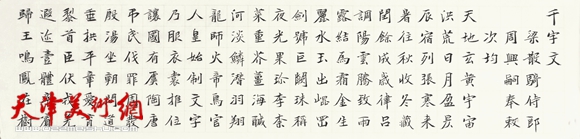 千字文
梁散騎侍郎
周興嗣奉敕
次均
天地玄黃宇宙
洪荒日月盈昃
辰宿列張寒來
暑往秋收冬藏
閏餘成歲律呂
調陽雲騰致雨
露結為霜金生
麗水玉出崑崗
劍號巨闕珠稱
夜光果珍李柰
菜重芥薑海鹹
河淡鱗潛羽翔
龍師火帝鳥官
人皇始制文字
乃服衣裳推位
讓國有虞陶唐
弔民伐罪周發
殷湯坐朝問道
垂拱平章
黎首臣伏
遐邇壹體
歸王鳴鳳在樹
天津美術網